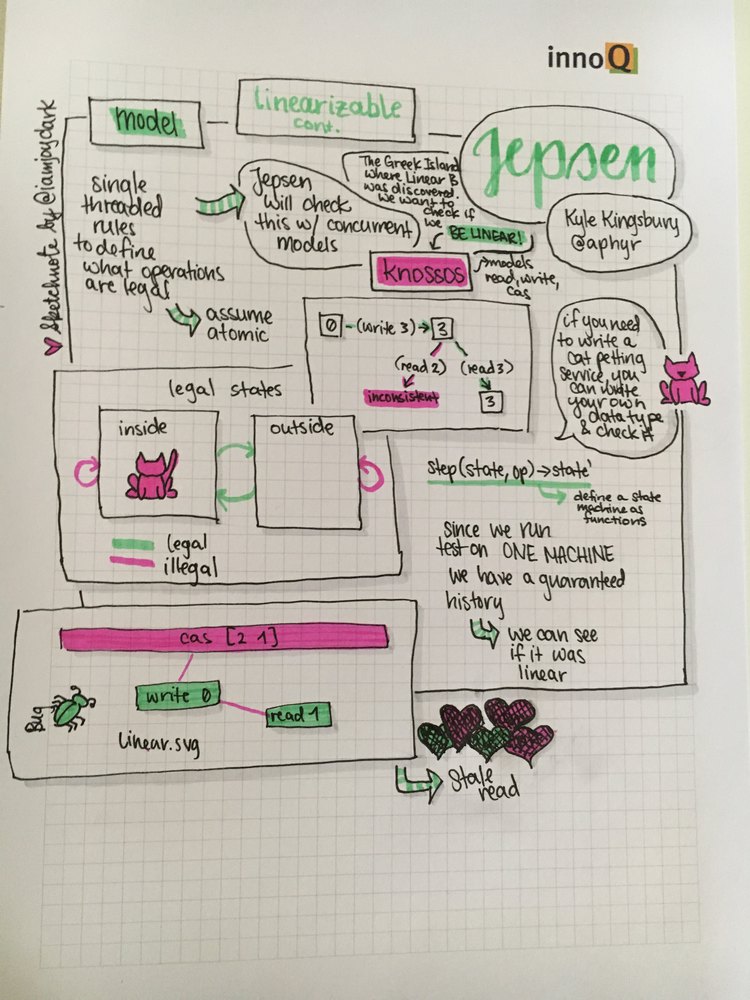 innoQ
Sketchnote by @iamjoyclark
model
linearizable
cont.
Jepsen
Kyle Kingsbury
@aphyr
single
threaded
rules
to define
what operations
are legal
assume
atomic
Jepsen
will check
this w/ concurrent
models
The Greek Island
where Linear B
was discovered.
We want to
check if
we
BE LINEAR!
knossos
models
read, write,
cas
0 -(write 3)→ 3
(read 2) (read 3)
inconsistent
3
if you need
to write a
cat petting
service, you
can write
your own
datatype
& check it
legal states
inside
outside
legal
illegal
step(state, op)→state'
define a state
machine as
functions
since we run
test on ONE MACHINE
we have a guaranteed
history
we can see
if it was
linear
cas [2 1]
write 0
read 1
Bug
linear.svg
Stale
read